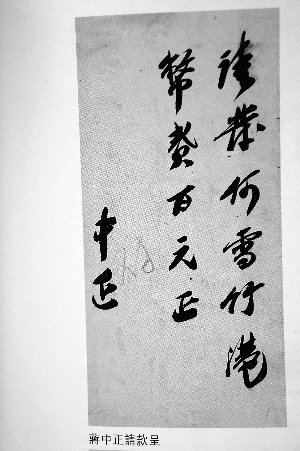 請発何雪竹港
幣貳百元正
中正
蔣中正請款呈